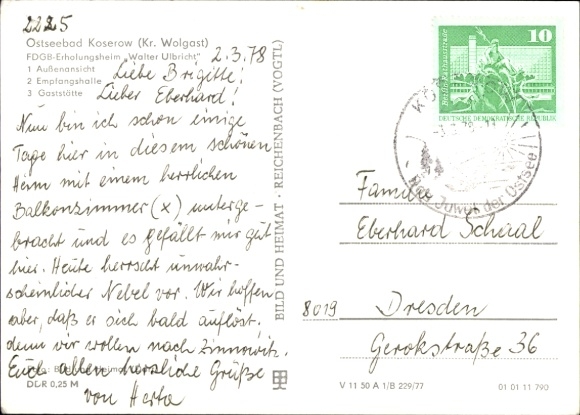 2225
Ostseebad Koserow (Kr. Wolgast)
FDGB-Erholungsheim „Walter Ulbricht"
1 Außenansicht
2 Empfangshalle
3 Gaststätte
2.3.78
Liebe Brigitte!
Lieber Eberhard!
Nun bin ich schon einige
Tage hier in diesem schönen
Heim mit einem herrlichen
Balkonzimmer (x) unterge-
bracht und es gefällt mir gut
hier. Heute herrscht unwahr-
scheinlicher Nebel vor. Wir hoffen
aber, daß er sich bald auflöst,
denn wir wollen nach Zinnowitz.
Euch allen herzliche Grüße
von Herta
DDR 0,25 M
BILD UND HEIMAT · REICHENBACH (VOGTL)
10
DEUTSCHE DEMOKRATISCHE REPUBLIK
Das Juwel der Ostsee
Familie
Eberhard Schaal
8019 Dresden
Gerokstraße 36
V 11 50 A 1/B 229/77
01 01 11 790